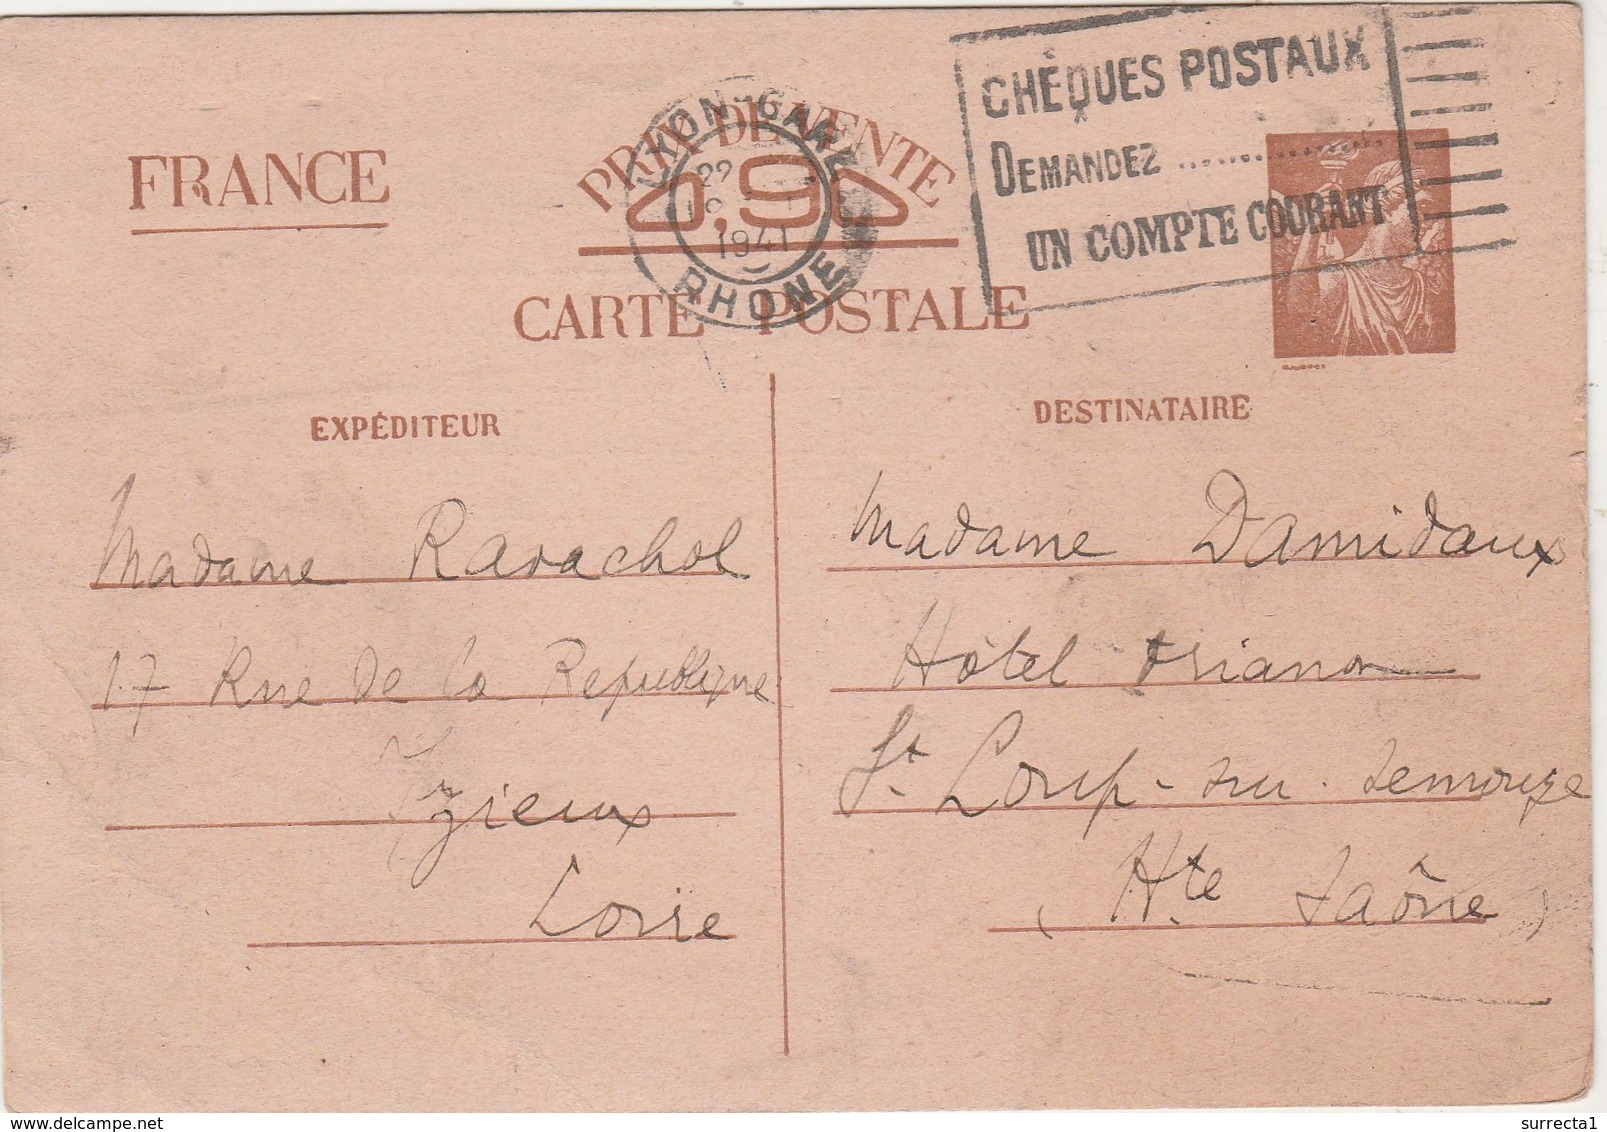 CHÈQUES POSTAUX
DEMANDEZ ..................
UN COMPTE COURANT
LYON-GARE
22
1941
RHONE
FRANCE
PRIX DE VENTE
0,90
CARTE POSTALE
EXPÉDITEUR
Madame Ravachol
17 Rue de la Republique
Izieux
Loire
DESTINATAIRE
Madame Damidaux
Hôtel trianon
St. Loup-sur-Semouze
(Hte Saône)
www.delcampe.net
surrecta1